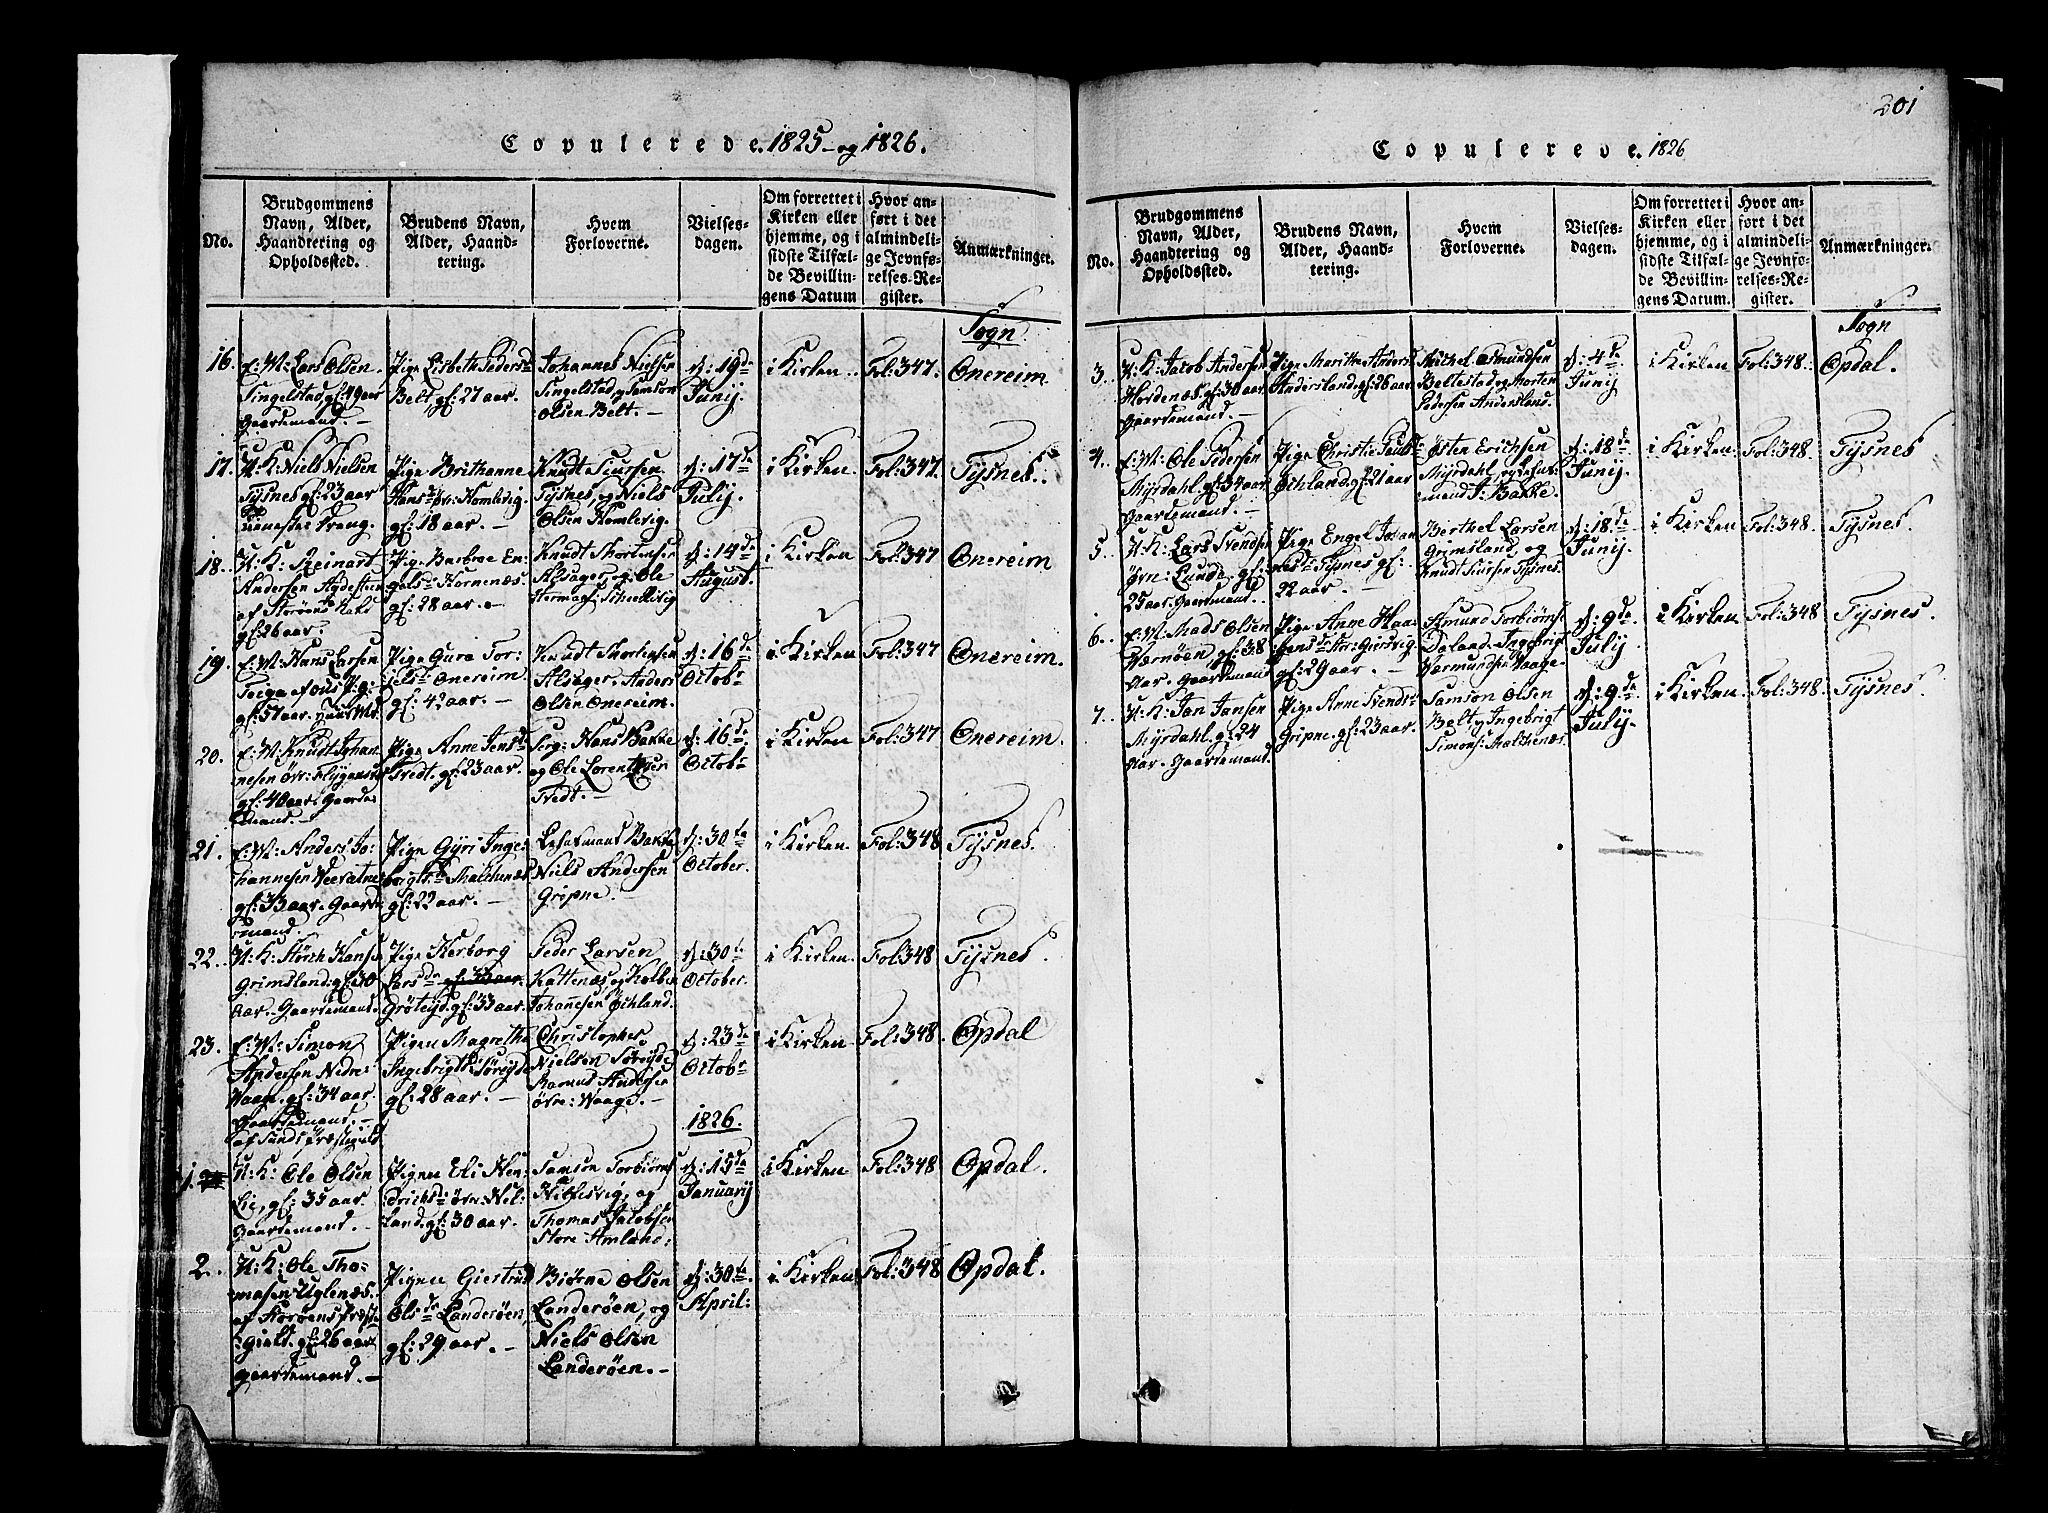 201
Copulerede. 1825 og 1826.
No.
Brudgommens
Navn, Alder,
Haandtering og
Opholdssted.
Brudens Navn,
Alder, Haand-
tering.
Hvem
Forloverne.
Vielses-
dagen.
Om forrettet i
Kirken eller
hjemme, og i
sidste Tilfæl-
de Bevillin-
gens Datum
Hvor an-
ført i det
almindeli-
ge Jevnfø-
relses-Re-
gister.
Anmærkninger.
Sogn
16. E: M: Lars Olsen
Singelstad gl: 49 aar
Gaardemand. -
Pige Lisbeth Peders d
Belt gl: 27 aar.
Johannes Nielsen
Singelstad og Samson
Olsen Belt. -
d: 19 de
Junij.
i Kirken
Fol: 347.
Onereim
17. U: K: Niels Nielsen
Tysnes gl: 23 aar
Pige Brithanne
Hans d øv: Homlevig
gl: 18 aar. -
Knudt Siursen
Tysnes, og Niels
Olsen Homlevig.
d: 17 de
Julij.
i Kirken
Fol: 347.
Tysnes.
18. U: K: Reinart
Andersen Agdesteen
af Storøens
gl: 26 aar.
Pige Barbroe En-
gels d Hornenæs
gl: 28 aar. -
Knudt Mortensen
Alsager, og Ole
d: 14 de
August.
i Kirken
Fol: 347
Onereim
19. E: M: Hans Larsen
gl: 57 aar.
Pige Gura Tor-
Onereim.
gl: 42 aar. -
Knudt Mortensen
Alsager, Anders
Olsen Onereim.
d: 16 de
Octobr
i Kirken
Fol: 347
Onereim.
20. E: M: Knudt Johan-
nesen Øvr: Flygansvær
gl: 40 aar. Gaarde-
mand. -
Pige Anne Jens d
Tvedt. gl: 23 aar.
Serg: Hans Bakke
og Ole Lorentsen
Tvedt. -
d: 16 de
Octobr
i Kirken
Fol: 347
Onereim.
21. E: M: Anders Jo-
hannesen
gl: 33 aar. Gaarde-
mand. -
Pige Gyri Inge-
brigts d Malchenæs
gl: 22 aar. -
Lehnsmand Bakke
Niels Andersen
Gripne. -
d: 30 te
October.
i Kirken.
Fol: 348
Tysnes.
22. U: K: Størch Hansen
Grimsland. gl: 30
Aar. Gaardemand.
Pige Herborg
Lars d gl: 33 aar.
gl: 33 aar.
Peder Larsen
Kattenæs, og Kolben
Johannesen Øthland.
d: 30 te
October.
i Kirken.
Fol: 348
Tysnes.
23. E: M: Simon
Andersen Nedre
Vaage. gl: 34 aar.
Gaardemand. -
Pigen Magrethe
Ingebrigts d Sørøyde
gl: 28 aar. -
Christopher
Nielsen Sørøyde
Rasmus Andersen
øvre: Waage. -
d: 23 de
Octobr
i Kirken
Fol: 348.
Opdal
1826.
1. U: K: Ole Olsen
Lie, gl: 35 aar.
Gaardemand. -
Pigen Eli Hen-
drichs d øvr: Nil-
land. gl: 30 aar.
Samson Torbiørns
og
Thomas Jacobsen
Store Amland.
d: 15 de
Januarij
i Kirken
Fol: 348
Opdal.
2. U: K: Ole Tho-
masen Uglenæs.
af Storøens Præste-
gield. gl: 26 aar
gaardemand. -
Pigen Giertrud
Ols d Landerøen,
gl: 29 aar. -
Biørne Olsen
Landerøen, og
Niels Olsen
Landerøen. -
d: 30 te
April:
i Kirken
Fol: 348
Opdal.
Copulerede. 1826
No.
Brudgommens
Navn, Alder,
Haandtering og
Opholdssted.
Brudens Navn,
Alder, Haand-
tering.
Hvem
Forloverne.
Vielses-
dagen.
Om forrettet i
Kirken eller
hjemme, og i
sidste Tilfæl-
de Bevillin-
gens Datum.
Hvor an-
ført i det
almindeli-
ge Jevnfø-
relses-Re-
gister.
Anmærkninger.
Sogn
3. U: K: Jacob Andersen
Hordenæs. gl: 30 aar
Gaardemand. -
Pige Marithe Anders d
Andersland. gl: 26 aar
Michel Asmundsen
Beltestad og Morten
Pedersen Andersland.
d: 4 de
Junij
i Kirken
Fol: 348.
Opdal.
4. E: M: Ole Pedersen
Myrdahl. gl: 34 aar
Gaardemand. -
Pige Christi Pauls d
Øthland. gl: 21 aar
Østen Erichsen
Myrdahl, og Lehns-
mand J: Bakke.
d: 18 de
Junij.
i Kirken
Fol: 348.
Tysnes
5. U: K: Lars Svendsen
Øvr: Lunde gl:
25 aar. Gaardemand.
Pige Engel Johan-
nes d Tysnes gl:
22 aar. -
Berthel Larsen
Grimsland, og
Knudt Siursen Tysnes.
d: 18 de
Junij.
i Kirken
Fol: 348.
Tysnes.
6. E: M: Mads Olsen
Wernøen gl: 38
Aar. Gaardemand
Pige Anne Haa-
gl: 29 aar. -
Amund Torbiørns:
Daland, Ingebrigt
Wermundsen Waage.
d: 9 de
July
i Kirken
Fol: 348
Tysnes.
7. U: K: Jan Jansen
Myrdahl. gl: 24
Aar. Gaardemand.
Pige Anne Svends d
Gripne. gl: 23 aar.
Samson Olsen
Belt og Ingebrigt
Simons: Malchenæs.
d: 9 de
July.
i Kirken.
Fol: 348.
Tysnes.